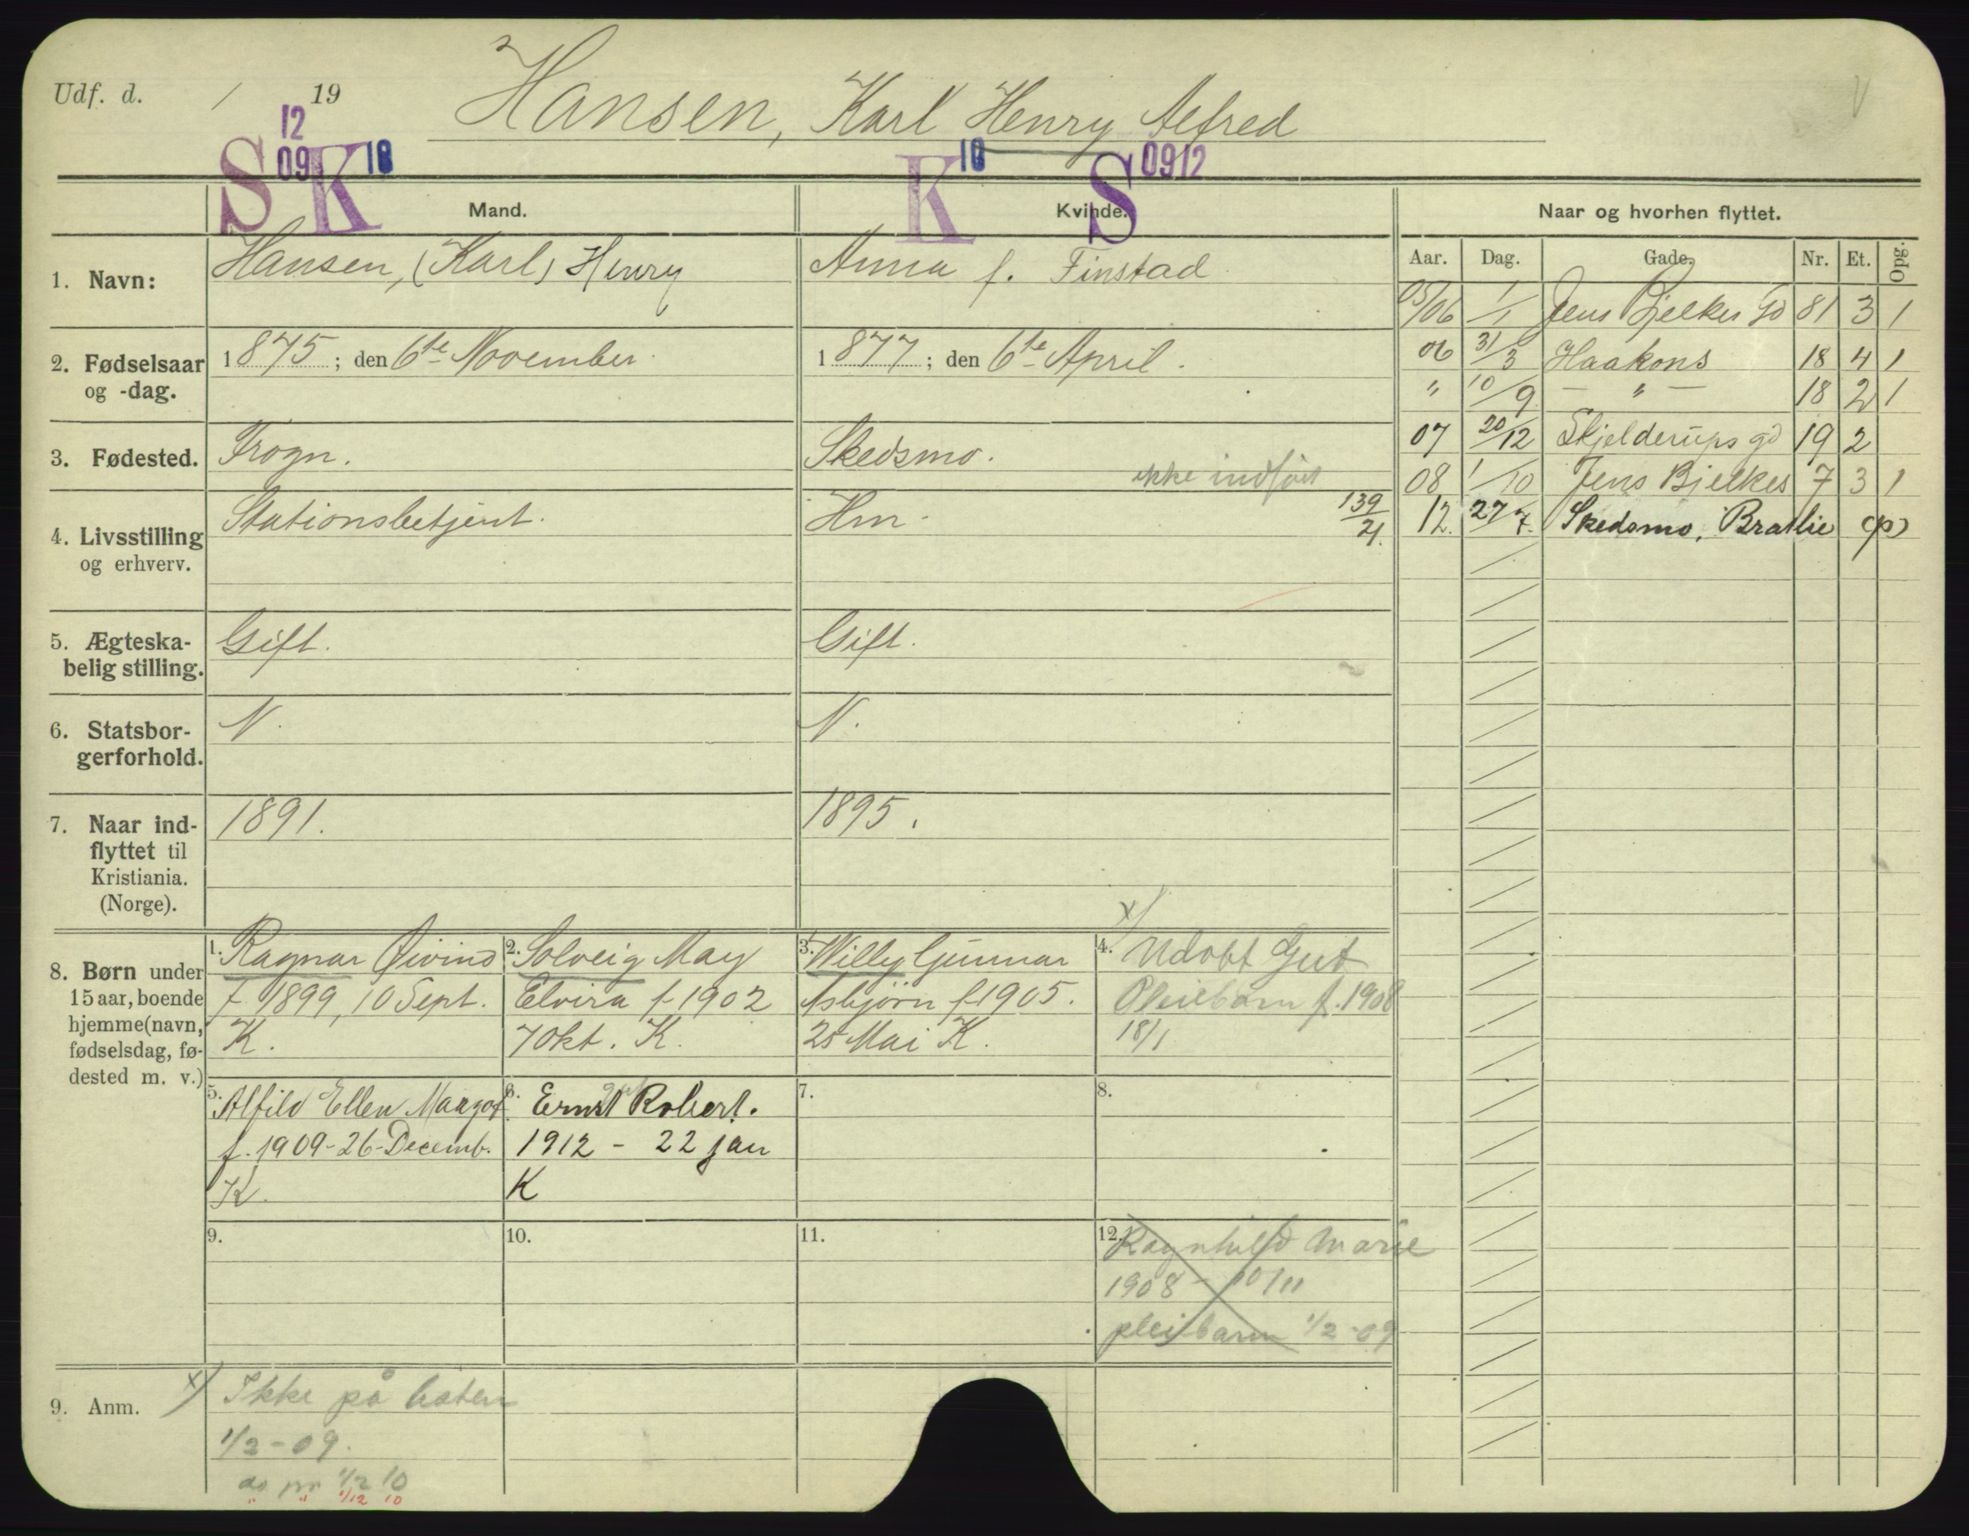 Udf. d. / 19
Hansen, Karl Henry Alfred
12
S 09 K 10
K 10 S 0912
Mand.
Kvinde.
Naar og hvorhen flyttet.
Aar. Dag. Gade. Nr. Et. Opg.
1. Navn:
Hansen, (Karl) Henry
Anna f. Finstad
2. Fødselsaar
og -dag.
1875; den 6te November.
1877; den 6te April.
3. Fødested.
Frogn.
Skedsmo.
ikke indført
4. Livsstilling
og erhverv.
Stationsbetjent.
Hm.
139/21.
5. Ægteska-
belig stilling.
Gift.
Gift.
6. Statsbor-
gerforhold.
N.
N.
7. Naar ind-
flyttet til
Kristiania.
(Norge).
1891.
1895.
05/06 1/1 Jens Bjelkes Gd 81 3 1
06 31/3 Haakons 18 4 1
" 10/9 — " — 18 2 1
07 20/12 Skjelderups gd 19 2
08 1/10 Jens Bjelkes 7 3 1
12. 27/7. Skedsmo, Bratlie (p)
8. Børn under
15 aar, boende
hjemme (navn,
fødselsdag, fø-
dested m. v.)
1. Ragnar Øivind
f 1899, 10 Sept.
K.
2. Solveig May
Elvira f 1902
7 Okt. K.
3. Willy Gunnar
Asbjørn f 1905.
25 Mai K.
x)
4. Udøbt Gut
Pleiebarn f. 1908
18/1
5. Alfild Ellen Margot
f. 1909-26-Decemb.
K.
6. Ernst Robert.
1912 - 22 jan
K
7.
8.
9.
10.
11.
12. Ragnhild Marie
1908 - 10/11
pleiebarn 1/2-09
9. Anm.
x) Ikke på listen
1/2-09.
do pr 1/2 10
" " 1/12 10